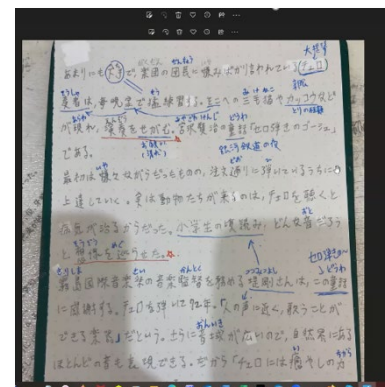 大提琴
がくだん だんいん
あまりにも下手で、楽団の団員に嫌みばかり言われている(チェロ
そうしゃ
奏者は、毎晩家で猛練習する。そこへの三毛猫やカッコウなど
が現れ、演奏をせがむ。宮沢賢治の童話「セロ弾きのゴーシュ」
である。
銀河鉄道の夜
最初は嫌々ながらだったものの、注文通りに弾いているうちに
上達していく。実は動物たちが来るのは、チェロを聴くと
病気が治るからだった。小学生の頃読み、どんな音だろう
と想像を巡らせた。
霧島国際音楽祭の音楽監督を務める堤剛さんは、この童話
に感謝する。チェロを弾いて72年。「人の声に近く、歌うことが
できる楽器」だという。さらに音域が広いので、自然界にある
ほとんどの音も表現できる。だから「チェロには癒やしの力